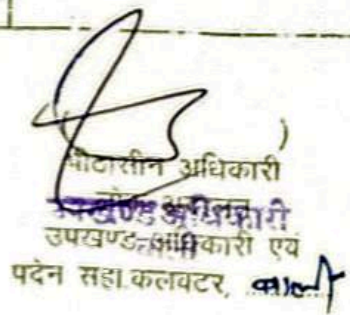 ( )
पीठासीन अधिकारी
उपखण्ड अधिकारी
उपखण्ड अधिकारी एवं
पदेन सहा.कलक्टर,